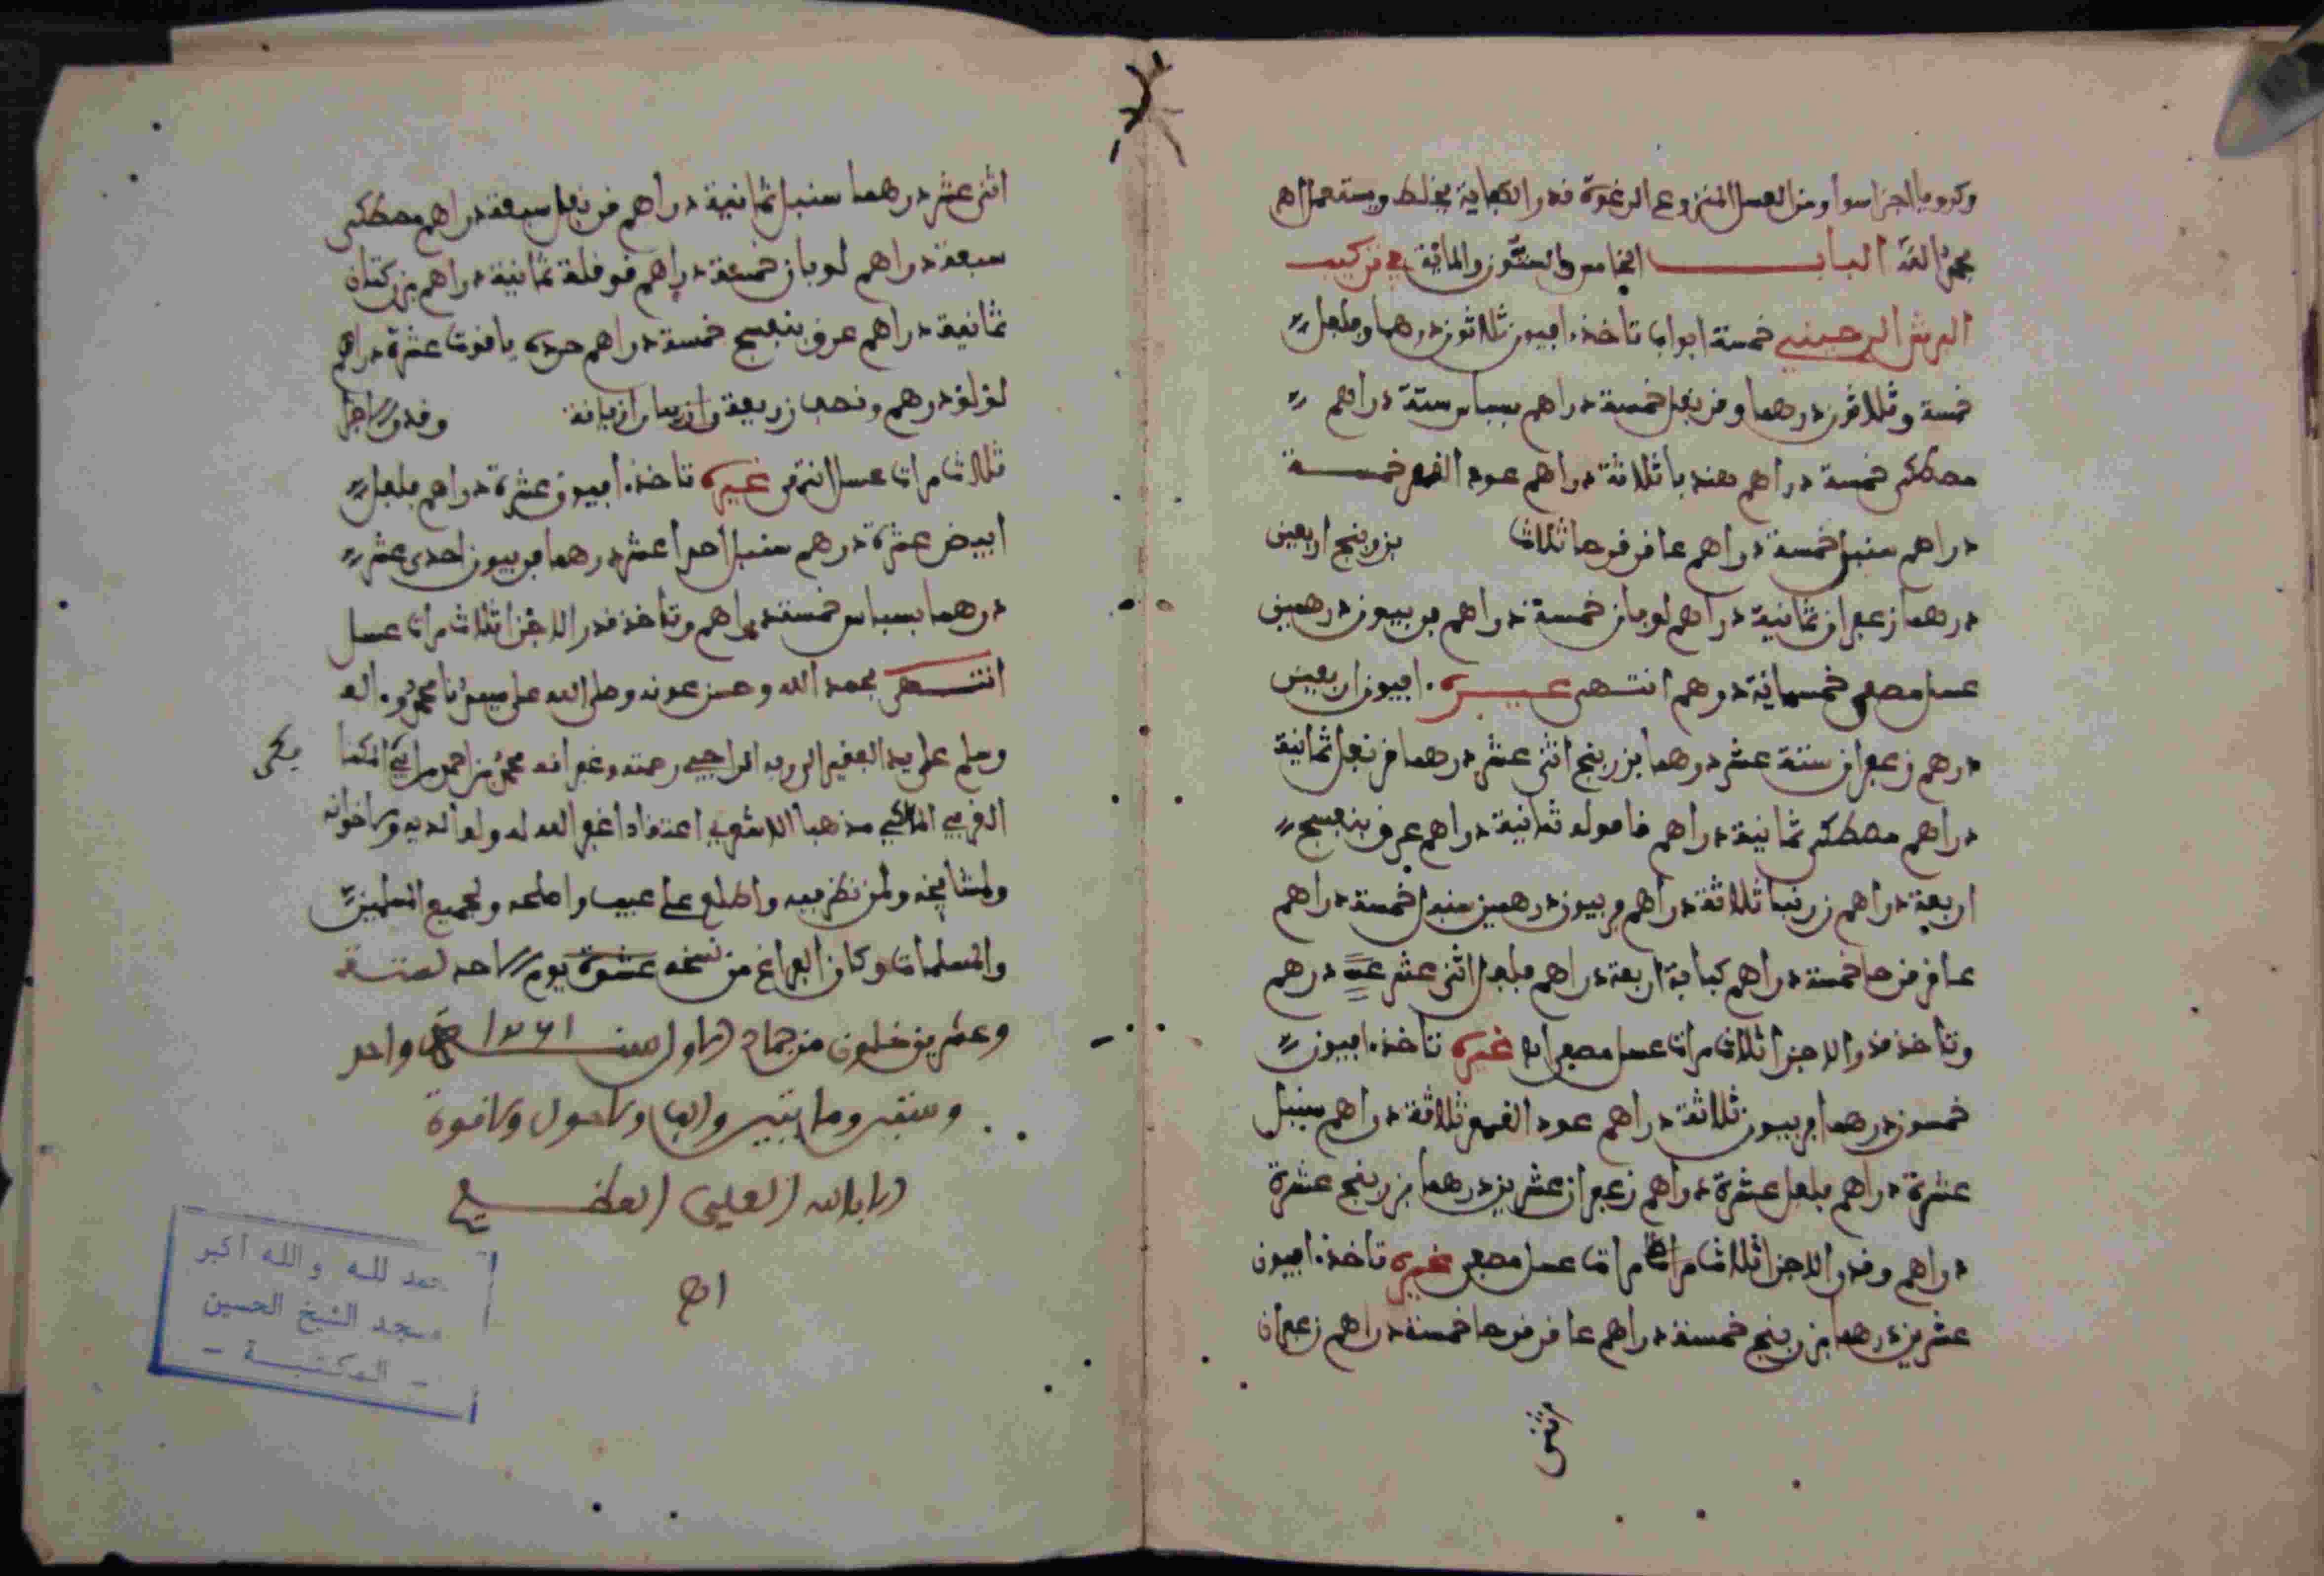 وكرويا اجزا سوا ومن العسل المنزوع الرغوة قدر الكفاية يخلط ويستعمل اه
البــــاب الخامس والستون والماية في تركيب
البرش خمسة ابواب تاخذ افيون ثلاثون درهما وفلفل
خمسة وثلاثون درهما وقرنفل خمسة دراهم بسباس ستة دراهم
مصطكى خمسة دراهم هنديا ثلاثة دراهم عود القمر خمســة
دراهم سنبل خمسة دراهم عاقرقرحا ثلاث بزر بنج اربعين
درهما زعفران ثمانية دراهم لوبان خمسة دراهم فربيون درهمين
عسل مصفى خمسماية درهم انتــهى غيــره افيون اربعين
درهم زعفران ستة عشر درهما بزر بنج اثنى عشر درهما قرنفل ثمانية
دراهم مصطكى ثمانية دراهم قاقوله ثمانية دراهم عرق بنفسج
اربعة دراهم زرنبا ثلاثة دراهم فربيون درهمين سنبل خمسة دراهم
عاقرقرحا خمسة دراهم كبابة اربعة دراهم فلفل اثنى عشر درهم
وتاخذ قدر الاجزا ثلاث مرات عسل مصفى اه غيره تاخذ افيون
خمسون درهما فربيون ثلاثة دراهم عود القمر ثلاثة دراهم سنبل
عشرة دراهم فلفل عشرة دراهم زعفران عشرين درهما بزر بنج عشرة
دراهم وقدر الاجزا ثلاث مرات مرات عسل مصفى غيره تاخذ افيون
عشرين درهما بزر بنج خمسة دراهم عاقرقرحا خمسة دراهم زعفران
اثنى
اثنى عشر درهما سنبل ثمانية دراهم قرنفل سبعة دراهم مصطكى
سبعة دراهم لوبان خمسة دراهم قوقلة ثمانية دراهم بزر كتان
ثمانية دراهم عرق بنفسج خمسة دراهم ياقوت عشرة دراهم
لؤلؤ درهم ونصف زريعة وقدر الاجزا
ثلاث مرات عسل انتهى غيره تاخذ افيون عشرة دراهم فلفل
ابيض عشرة درهم سنبل احدا عشر درهما فربيون احدى عشر
درهما بسباس خمسة دراهم وتاخذ قدر الاجزا ثلاث مرات عسل
انتــهى بحمد الله وحسن عونه وصلى الله على سيدنا محمد واله
وسلم على يد الفقير الى ربه الراجي رحمته وغفرانه محمد بن
المالكي مذهبا الاشعري اعتقادا غفر الله له ولوالديه ولاخوانه
ولمشايخه ولمن نظر فيه واطلع على عيب واصلحه ولجميع المسلمين
والمسلمات وكان الفراغ من نسخه عشوة يوم الاحد لستــة
وعشرين خلون من جماد الاول سنــة ١٢٦١ واحد
وستين وماتين والف ولا حول ولا قوة
الا بالله العلي العظــيم
اه
حمد لله والله اكبر
مسجد الشيخ الحسين
- المكتبــة -